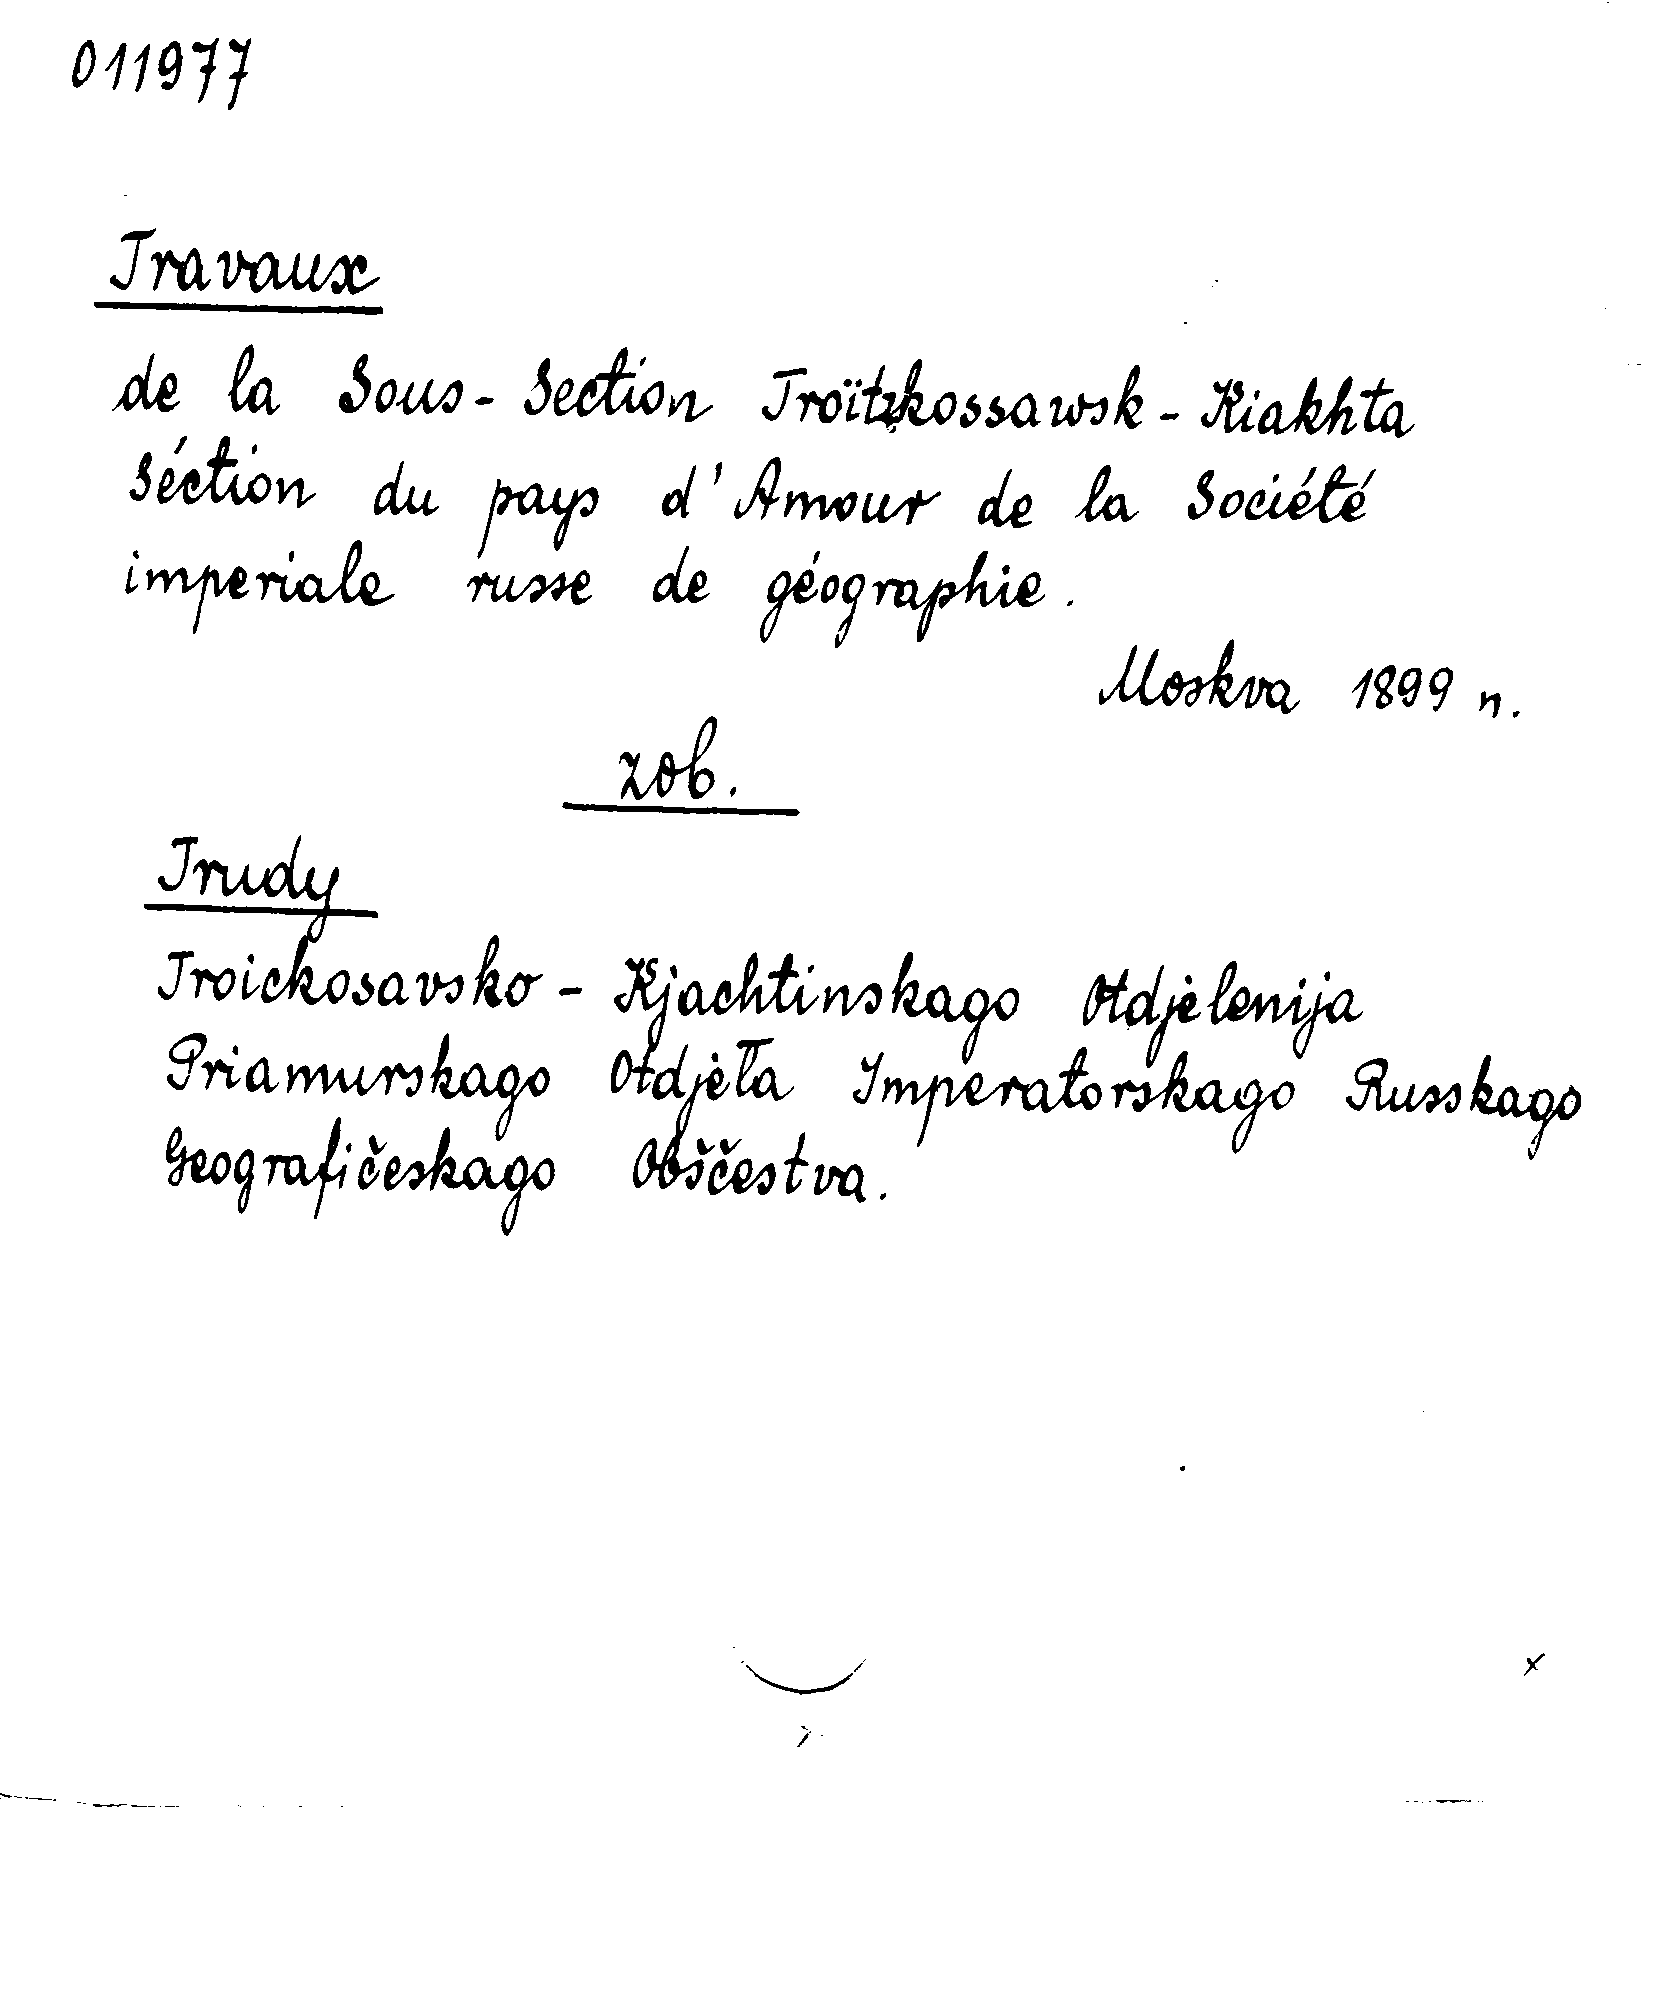 011977
Travaux
de la Sous-Section Troïtzkossawsk-Kiakhta
Séction du pays d'Amour de la Société
imperiale russe de géographie.
Moskva 1899 n.
zob.
Trudy
Troickosavsko-Kjachtinskago Otdjelenija
Priamurskago Otdjeła Imperatorskago Russkago
Geografičeskago Obščestva.
x